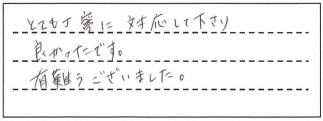 とても丁寧に対応して下さり
良かったです。
有難うございました。